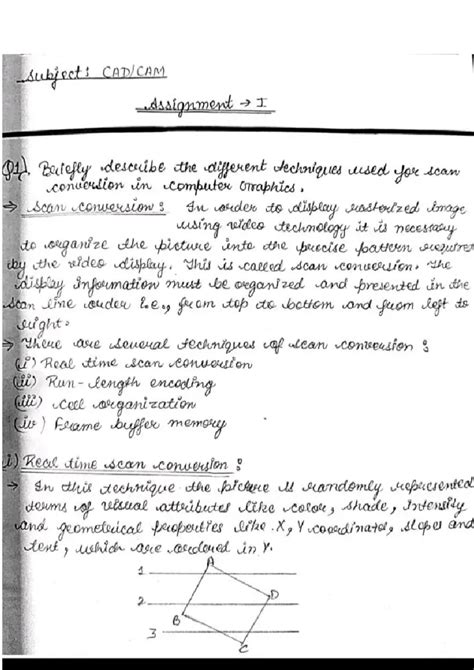 Subject: CAD/CAM
Assignment → I
Q1). Briefly describe the different techniques used for scan
conversion in computer Graphics.
→ Scan conversion: In order to display rasterized image
using video technology it is necessary
to organize the picture into the precise pattern required
by the video display. This is called scan conversion. The
display information must be organized and presented in the
scan line order i.e., from top to bottom and from left to
right.
→ There are several techniques of scan conversion:
(i) Real time scan conversion
(ii) Run-length encoding
(iii) Cell organization
(iv) Frame buffer memory
i) Real time scan conversion:
→ In this technique the picture is randomly represented
terms of visual attributes like color, shade, intensity
and geometrical properties like X, Y coordinates, slopes and
text, which are ordered in Y.
A
1
2
D
B
3
C